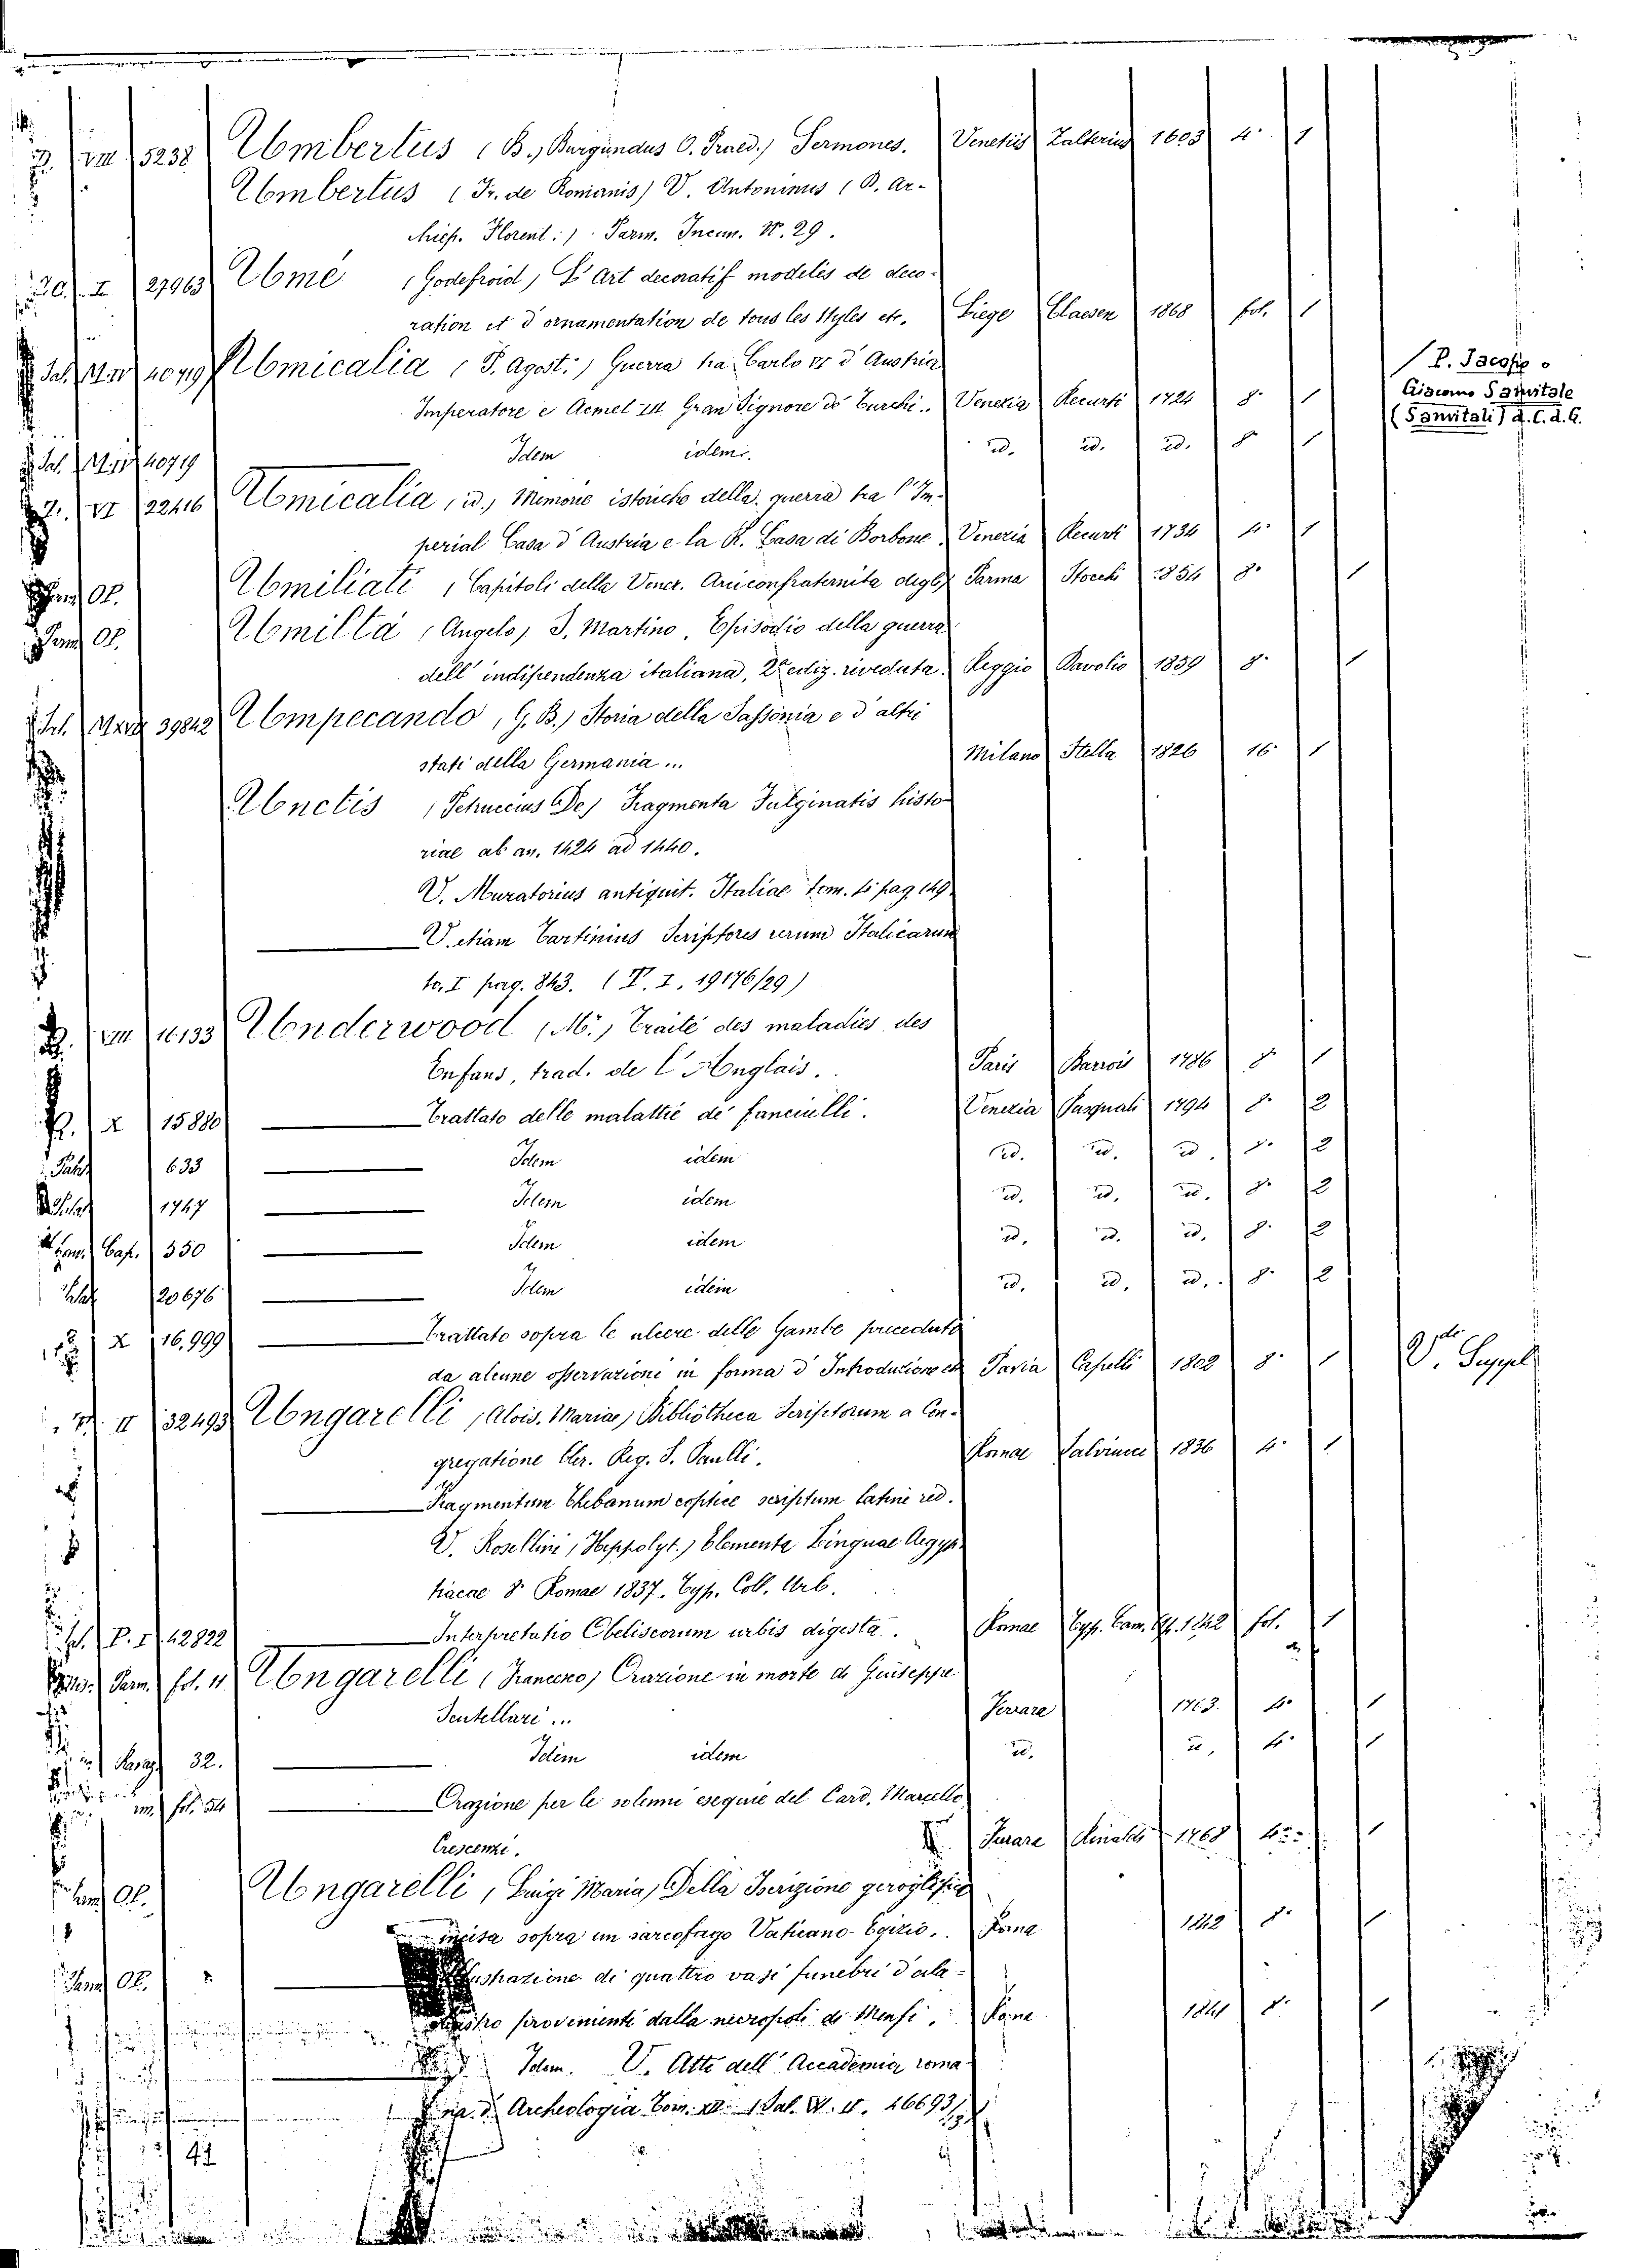 D. VIII 5238 Umbertus (B., Burgundus O. Praed.) Sermones. Venetiis Zalterius 1603 4° 1
Umbertus (Fr. de Romanis) V. Antoninus (B. Ar-
chiep. Florent.) Parm. Incun. N. 29.
I. 27963 Umé (Godefroid) L'Art decoratif modelès de deco-
ration et d'ornamentation de tous les Styles etc. Liege Claesen 1868 fol. 1
Sal. 40719 Umicalia (P. Agost.) Guerra tra Carlo VI d'Austria
Imperatore e Acmet III Gran Signore de' Turchi.. Venezia Recurti 1724 8° 1
(P. Jacopo o
Giacomo Sanvitale
(Sanvitali) d. C. d. G.
Sal. 40719 Idem idem. id. id. id. 8° 1
VI 22416 Umicalia, id., Memorie istoriche della guerra tra l'Im-
perial Casa d'Austria e la R. Casa di Borbone. Venezia Recurti 1734 4° 1
Parm. Op. Umiliati (Capitoli della Vener. Arciconfraternita degli) Parma Stocchi 1854 8° 1
Parm. Op. Umiltà (Angelo) S. Martino, Episodio della guerra
dell'indipendenza italiana, 2ª ediz. riveduta. Reggio Davolio 1859 8° 1
Sal. 39842 Umpecando (G. B.) Storia della Sassonia e d'altri
stati della Germania... Milano Stella 1826 16° 1
Unctis (Petruccius De) Fragmenta Fulginatis histo-
riae ab an. 1424 ad 1440.
V. Muratorius antiquit. Italiae tom. 4 pag. 149.
V. etiam Tartinius Scriptores rerum Italicarum
to. I pag. 843. (P. I. 19176/29)
VIII 16133 Underwood (M.) Traité des maladies des
Enfans, trad. de l'Anglais. Paris Barrois 1786 8° 1
X 15880 Trattato delle malattie de' fanciulli. Venezia Pasquali 1794 8° 2
Palat. 633 Idem idem id. id. id. 8° 2
Palat. 1747 Idem idem id. id. id. 8° 2
Cap. 550 Idem idem id. id. id. 8° 2
Palat. 20676 Idem idem id. id. id. 8° 2
X 16,999 Trattato sopra le ulcere delle Gambe preceduto
da alcune osservazioni in forma d'Introduzione etc. Pavia Capelli 1802 8° 1
V. Suppl.
II 32493 Ungarelli (Alois. Mariae) Bibliotheca Scriptorum a Con-
gregatione Cler. Reg. S. Paulli. Romae Salviucci 1836 4° 1
Fragmentum Thebanum coptice scriptum latine red.
V. Rosellini (Hippolyt.) Elementa Linguae Aegyp-
tiacae 8° Romae 1837. Typ. Coll. Urb.
P. I 42822 Interpretatio Obeliscorum urbis digesta.. Romae Typ. Cam. Ap. 1842 fol. 1
Parm. fol. 11 Ungarelli (Francesco) Orazione in morte di Guiseppe
Scutellari... Ferrara 1763. 4° 1
32. Idem idem id. id. 4° 1
fol. 54 Orazione per le solenni esequie del Card. Marcello
Crescenzi. Ferrara Rinaldi 1768 4° 1
Parm. Op. Ungarelli (Luigi Maria) Della Iscrizione geroglifica
incisa sopra un sarcofago Vaticano-Egizio.. Roma 1842 8° 1
Parm. Op. Illustrazione di quattro vasi funebri d'ala-
bastro provenienti dalla necropoli di Menfi. Roma 1841 8° 1
Idem. V. Atti dell'Accademia roma-
na d'Archeologia Tom. Sal. 46693
41